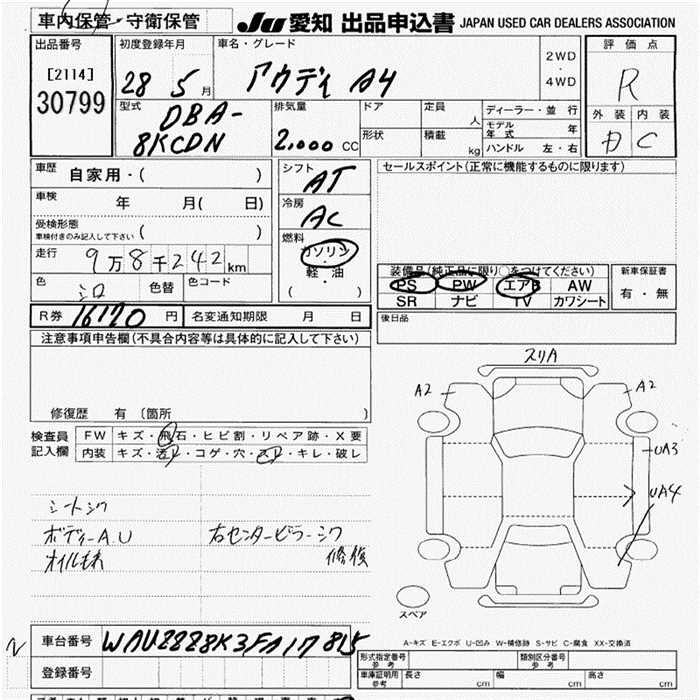 車内保管・守衛保管
JU 愛知 出品申込書 JAPAN USED CAR DEALERS ASSOCIATION
出品番号
[2114]
30799
初度登録年月
28 5 月
車名・グレード
アウディ A4
2WD
・
4WD
評価点
R
外装 内装
D C
型式
DBA-
8KCDN
排気量
2,000 CC
ドア
形状
定員
人
積載
kg
ディーラー・並行
モデル年式 年
ハンドル 左・右
車歴
自家用・( )
車検
年 月( 日)
受検形態
車検付きのみ記入して下さい ( )
走行
9万8千242km
色
シロ
色替
色コード
シフト
AT
冷房
AC
燃料
ガソリン
・
軽・油
( )
セールスポイント(正常に機能するものに限ります)
装備品(純正品に限り○をつけてください)
PS PW エアB AW
SR ナビ TV カワシート
新車保証書
有・無
R券 16170 円
名変通知期限 月 日
後日品
注意事項申告欄(不具合内容等は具体的に記入して下さい)
修復歴 有 〔箇所 〕
スリA
A2
A2
UA3
UA4
スペア
検査員
記入欄
FW キズ・飛石・ヒビ割・リペア跡・X要
内装 キズ・汚れ・コゲ・穴・スレ・キレ・破レ
シートシワ
ボディーA.U
右センターピラーシワ
修復
オイルモレ
A-キズ E-エクボ U-凹み W-補修跡 S-サビ C-腐食 XX-交換済
車台番号 WAUZZZ8K3FA117815
登録番号
形式指定番号
参考
類別区分番号
参考
車庫証明用
参考
長さ cm
幅 cm
高さ cm